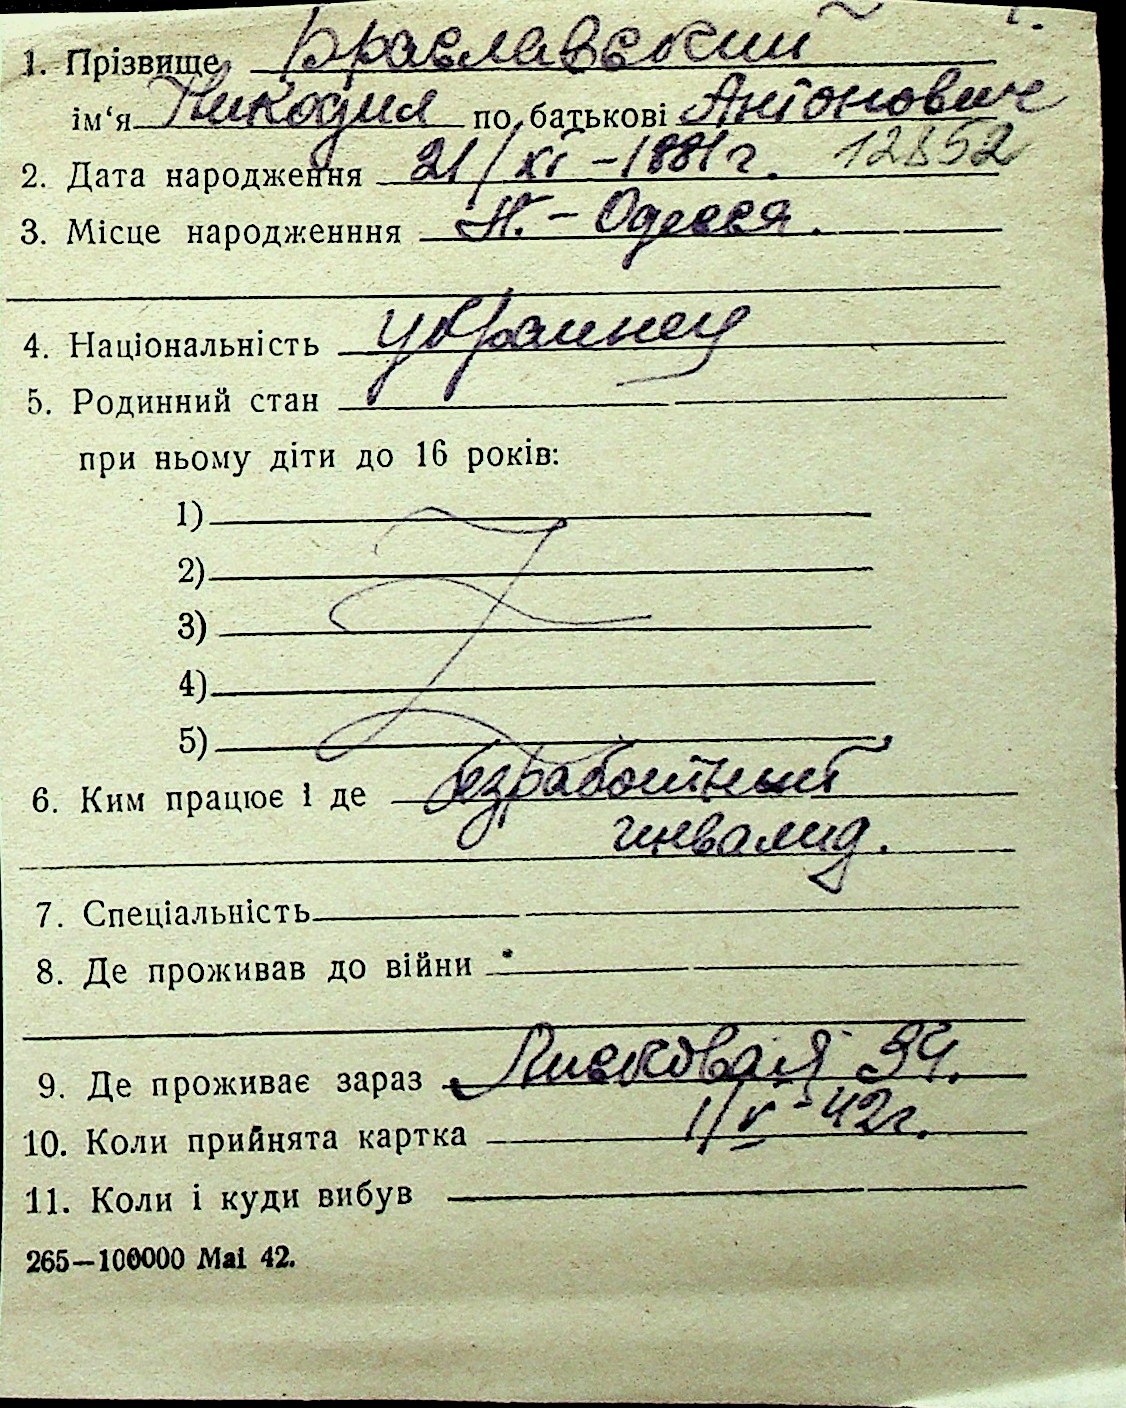 1. Прізвище Браславский
ім‘я Никодим по батькові Антонович
12852
2. Дата народження 21/XI – 1881 г.
3. Місце народженння Н. – Одесса.
4. Національність украинец
5. Родинний стан
при ньому діти до 16 років:
1)
2)
3)
4)
5)
6. Ким працює і де безработный
инвалид.
7. Спеціальність
8. Де проживав до війни
9. Де проживає зараз 34.
10. Коли прийнята картка 1/V – 42 г.
11. Коли і куди вибув
265—100000 Mai 42.